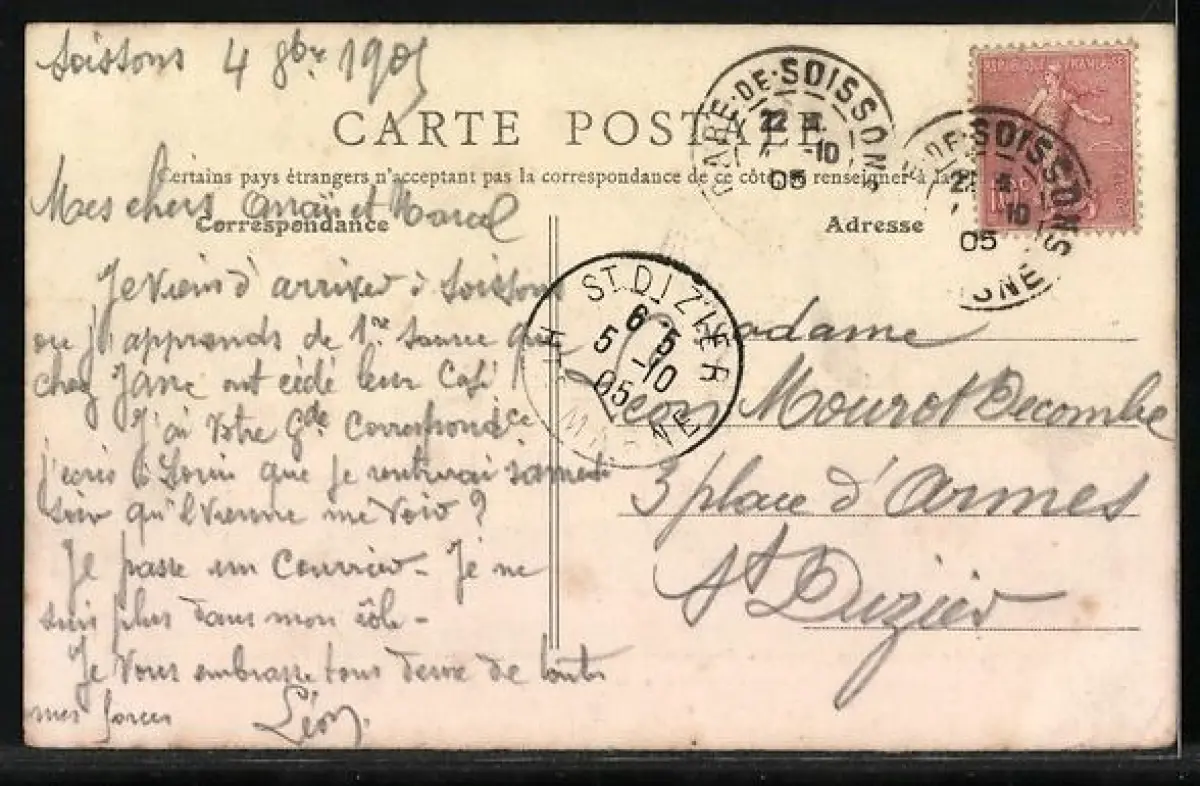 Soissons 4 8bre 1905
CARTE POSTALE
Certains pays étrangers n'acceptant pas la correspondance de ce côté, se renseigner à la
Mes chers et Marcel
Correspondance
Je viens d'arriver à Soissons
ou j'apprends de 1re source que
chez ont cédé leur Café !
J'ai votre Gde Correspondce
j'écris à que je rentrerai samedi
soir qu'il vienne me voir ?
Je passe un Courrier - Je ne
suis plus dans mon
Je vous embrasse tous deux de toutes
mes forces Léon.
GARE-DE-SOISSONS
22
-10
05
GARE-DE-SOISSONS
AISNE
22
-10
05
REPUBLIQUE FRANÇAISE
10c
POSTES
ST DIZIER
HTE MARNE
6 5
5 -10
05
Adresse
Madame
Léon Mourot Decombe
3 place d'Armes
St Dizier